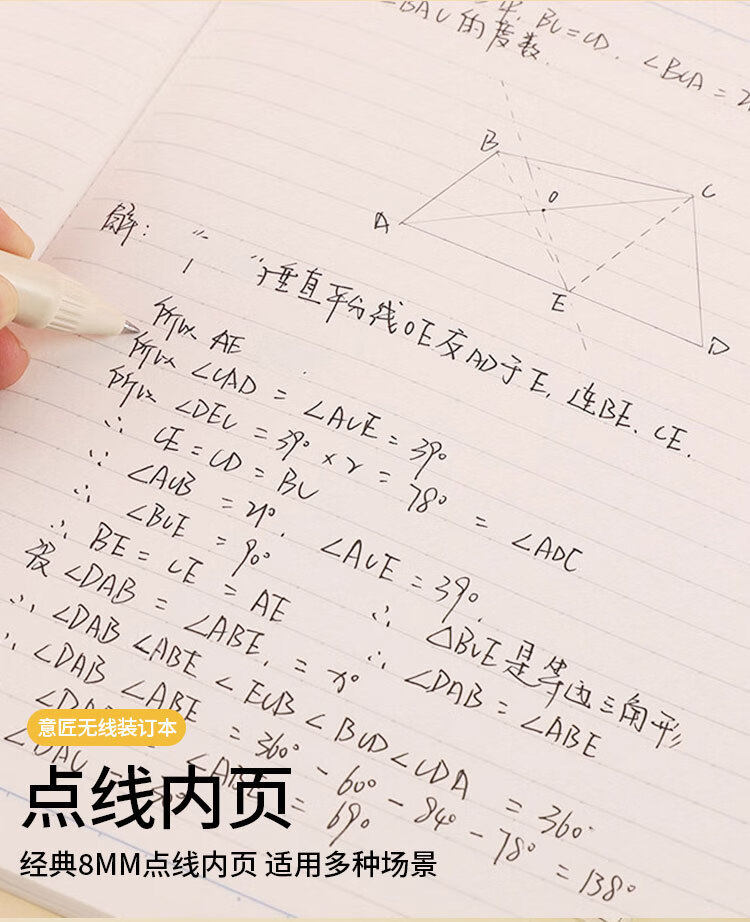 BC=CD. ∠BCA=2
∠BAC的度数.
B
C
O
A
E
D
解:
垂直平分线OE交AD于E, 连BE、CE.
所以 AE
所以 ∠CAD = ∠ACE = 39°
所以 ∠DEC = 39° × 2 = 78° = ∠ADC
∴ CE = CD = BC
∵ ∠ACB = 21°, ∠ACE = 39°.
∴ ∠BCE = 90° ∴ △BCE是等边三角形
∴ BE = CE = AE ∴ ∠DAB = ∠ABE
设 ∠DAB = ∠ABE. = x°
∴ ∠DAB ∠ABE < ECB < BCD < CDA = 360°
∴ ∠DAB ∠ABE = 360° - 60° - 84° - 78° = 138°
= ∠AB = 69°
∠DAC
意匠无线装订本
点线内页
经典8MM点线内页 适用多种场景